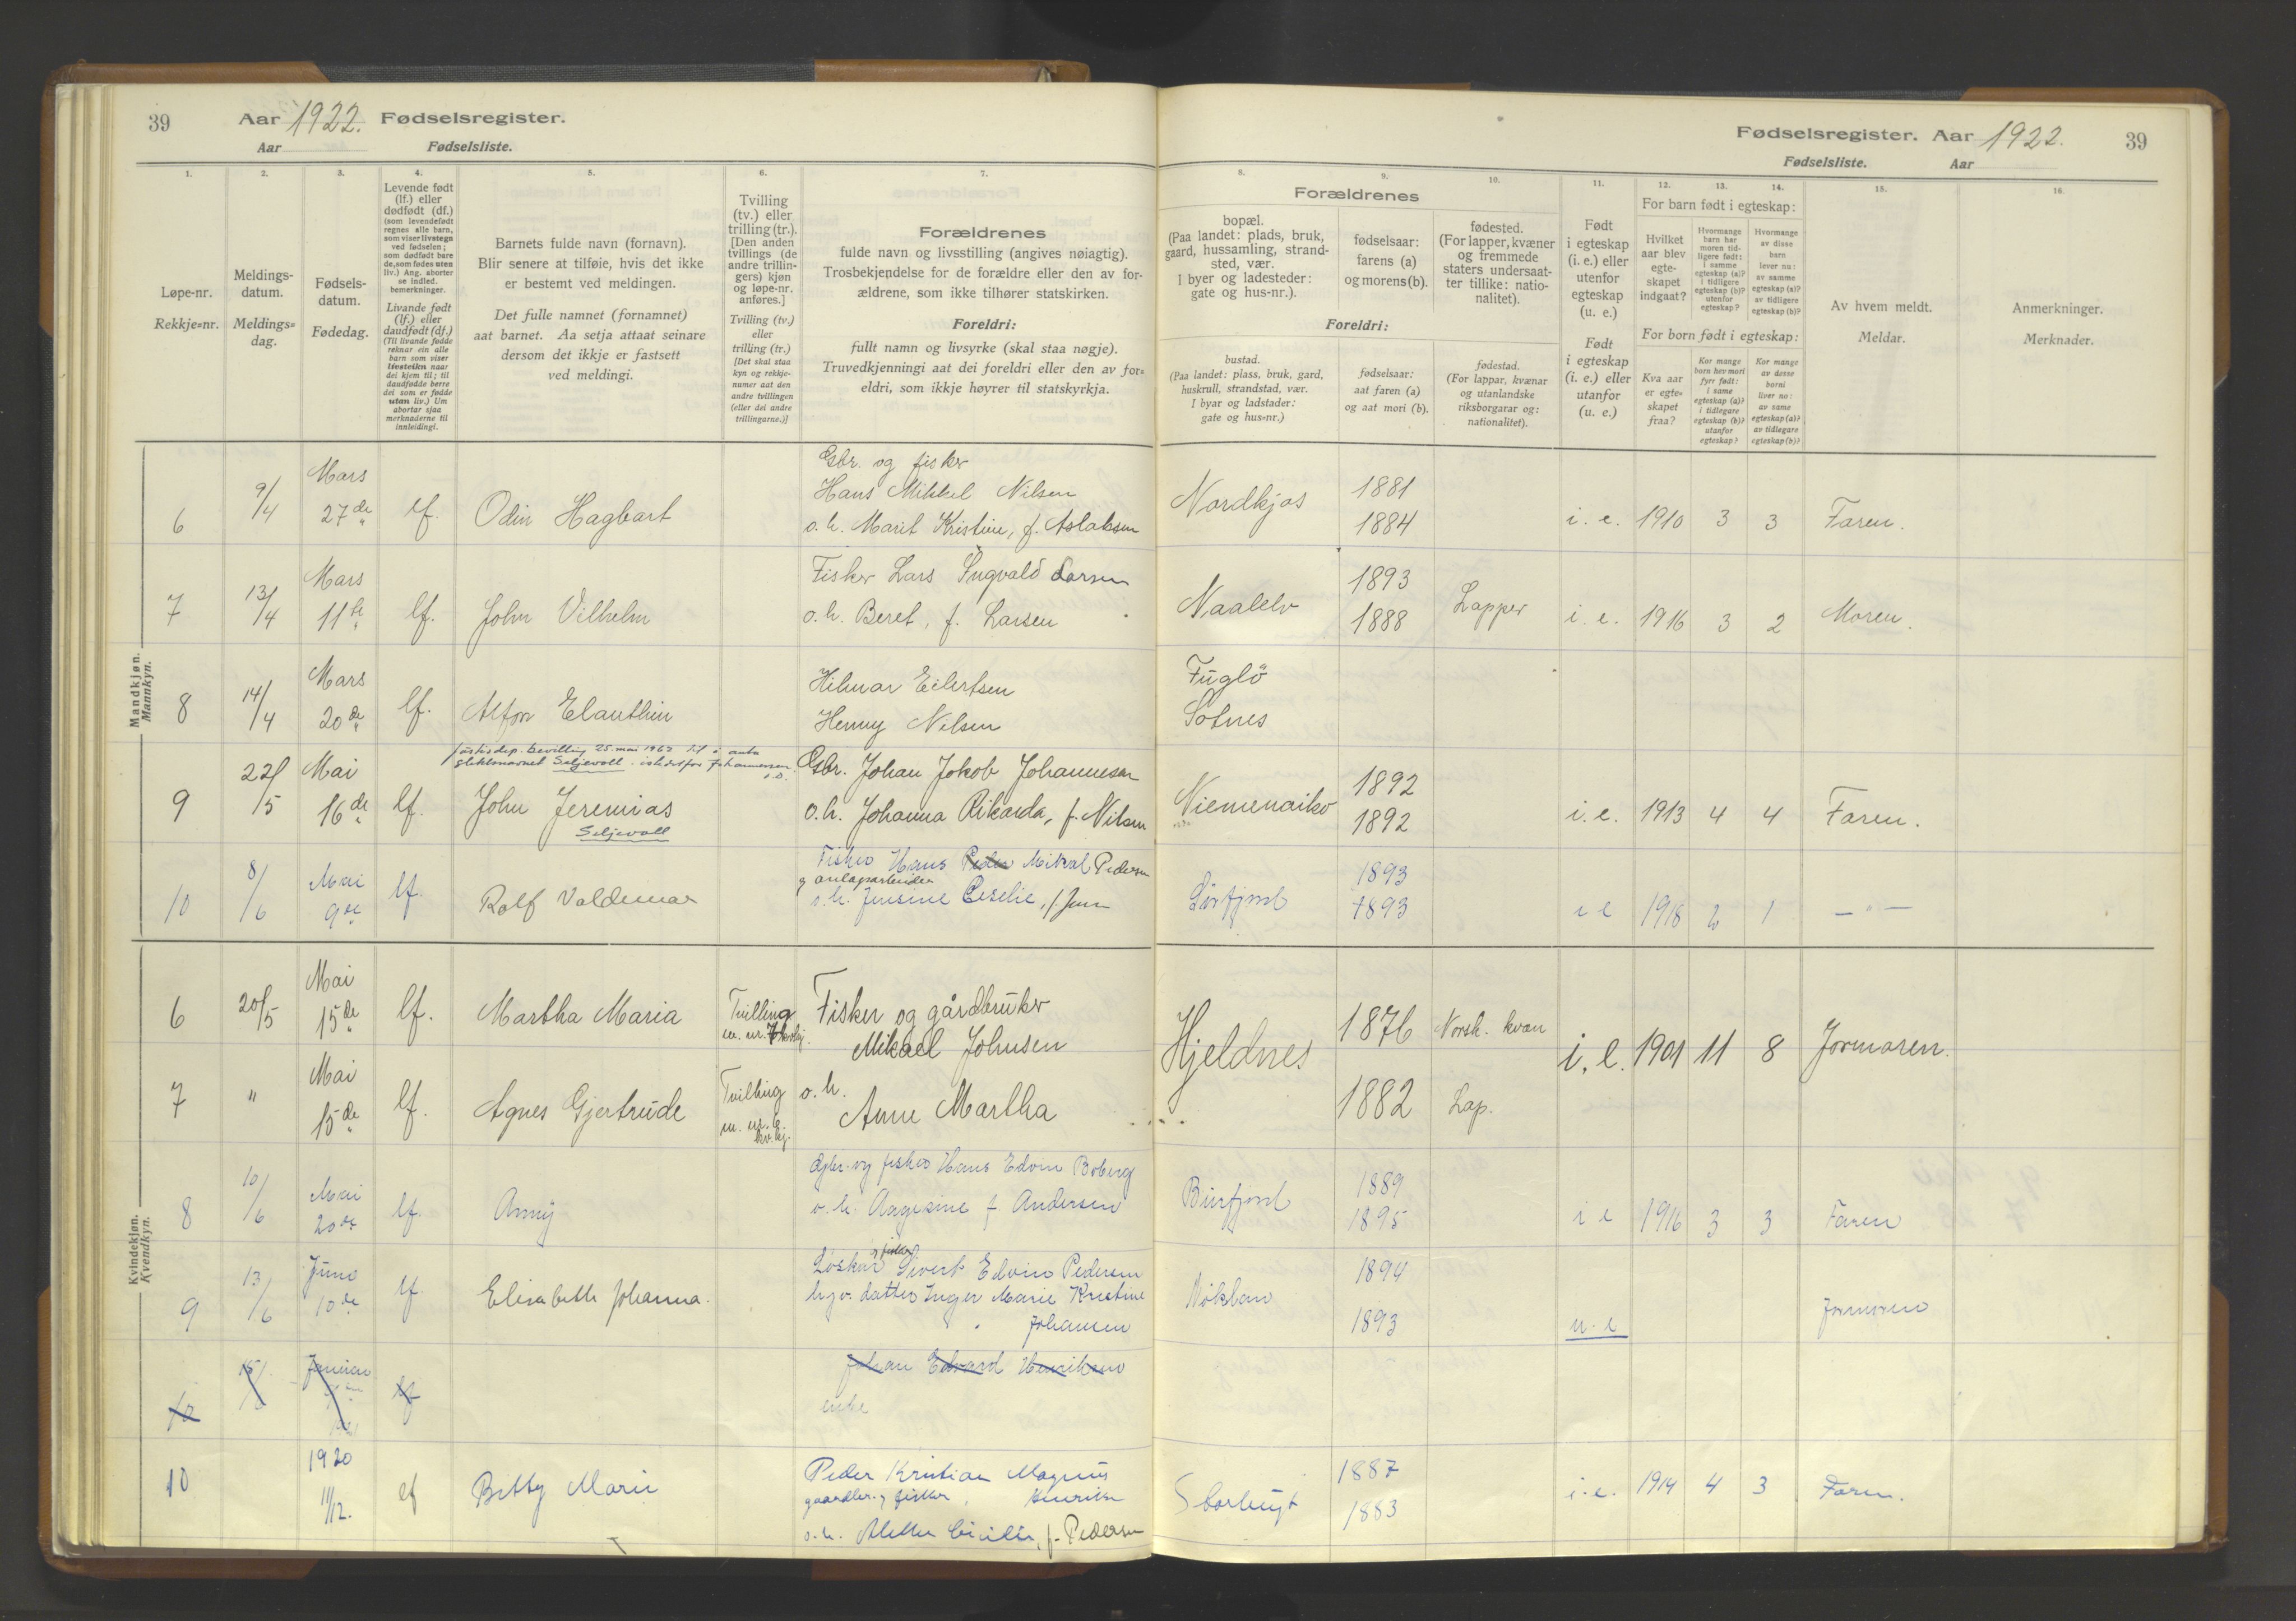 39
Aar 1922. Fødselsregister.
Aar Fødselsliste.
Fødselsregister. Aar 1922.
39
Fødselsliste. Aar
1.
2.
3.
4.
5.
6.
7.
8.
9.
10.
11.
12.
13.
14.
15.
16.
Løpe-nr.
Rekkje=nr.
Meldings-
datum.
Meldings=
dag.
Fødsels-
datum.
Fødedag.
Levende født
(lf.) eller
dødfødt (df.)
(som levendefødt
regnes alle barn,
som viser livstegn
ved fødselen;
som dødfødt bare
de, som fødes uten
liv.) Ang. aborter
se indled.
bemerkninger.
Livande født
(lf.) eller
daudfødt (df.)
(Til livande fødde
reknar ein alle
barn som viser
livsteikn naar
dei kjem til; til
daudfødde berre
dei som er fødde
utan liv.) Um
abortar sjaa
merknaderne til
innleidingi.
Barnets fulde navn (fornavn).
Blir senere at tilføie, hvis det ikke
er bestemt ved meldingen.
Det fulle namnet (fornamnet)
aat barnet. Aa setja attaat seinare
dersom det ikkje er fastsett
ved meldingi.
Tvilling
(tv.) eller
trilling (tr.).
[Den anden
tvillings (de
andre trillin-
gers) kjøn
og løpe-nr.
anføres.]
Tvilling (tv.)
eller
trilling (tr.)
[Det skal staa
kyn og rekkje-
numer aat den
andre tvillingen
(eller dei andre
trillingarne.)]
Forældrenes
fulde navn og livsstilling (angives nøiagtig).
Trosbekjendelse for de forældre eller den av for-
ældrene, som ikke tilhører statskirken.
Foreldri:
fullt namn og livsyrke (skal staa nøgje).
Truvedkjenningi aat dei foreldri eller den av for=
eldri, som ikkje høyrer til statskyrkja.
Forældrenes
bopæl.
(Paa landet: plads, bruk,
gaard, hussamling, strand-
sted, vær.
I byer og ladesteder:
gate og hus-nr.).
fødselsaar:
farens (a)
og morens (b).
fødested.
(For lapper, kvæner
og fremmede
staters undersaat-
ter tillike: natio-
nalitet).
Foreldri:
bustad.
(Paa landet: plass, bruk, gard,
huskrull, strandstad, vær.
I byar og ladstader:
gate og hus=nr.)
fødselsaar:
aat faren (a)
og aat mori (b).
fødestad.
(For lappar, kvænar
og utanlandske
riksborgarar og:
nationalitet).
Født
i egteskap
(i. e.) eller
utenfor
egteskap
(u. e.)
Født
i egteskap
(i. e.) eller
utanfor
(u. e.)
For barn født i egteskap:
Hvilket
aar blev
egte-
skapet
indgaat?
Hvormange
barn har
moren tid-
ligere født:
i samme
egteskap (a)?
i tidligere
egteskap (b)?
utenfor
egteskap?
Hvormange
av disse
barn
lever nu:
av samme
egteskap (a)?
av tidligere
egteskap (b)?
For born født i egteskap:
Kva aar
er egte=
skapet
fraa?
Kor mange
born hev mori
fyrr født:
i same
egteskap (a)?
i tidlegare
egteskap (b)?
utanfor
egteskap?
Kor mange
av desse
borni
liver no:
av same
egteskap (a)?
av tidlegare
egteskap (b)?
Av hvem meldt.
Meldar.
Anmerkninger.
Merknader.
Mandkjøn.
Mannkyn.
6 9/4 Mars 27de lf. Odin Hagbart
Gbr. og fisker
Hans Mikkel Nilsen
o. h. Marit Kristine, f. Aslaksen
Nordkjos 1881 1884 i. e. 1910 3 3 Faren.
7 13/4 Mars 11te lf. John Vilhelm
Fisker Lars Ingvald Larsen
o. h. Beret, f. Larsen
Naalelv 1893 1888 Lapper i. e. 1916 3 2 Moren.
8 14/4 Mars 20de lf. Alfon Elanthin
Hilmar Eilertsen
Henny Nilsen
Fuglö
Sotnes
Justisdep. bevilling 25. mai 1962 til å anta
slektsnavnet Seljevoll istedetfor Johannessen.
9 22/5 Mai 16de lf. John Jeremias
Seljevoll
Gbr. Johan Jokob Johannesen
o. h. Johanna Rikarda, f. Nilsen
Niemenaiko 1892 1892 i. e. 1913 4 4 Faren.
10 8/6 Mai 9de lf. Rolf Valdemar
Fisker Hans Peder Mikal Pedersen
og anlægsarbeider
o. h. Jensine Ceselie, f. Jen
Sörfjord 1893 1893 i e 1918 2 1 — " —
Kvindekjøn.
Kvendkyn.
6 20/5 Mai 15de lf. Martha Maria Tvilling m. nr. 7 kvkj.
Fisker og gårdbruker
Mikael Johnsen
Hjeldnes 1876 Norsk. kvæn i. e. 1901 11 8 Jormoren.
7 " Mai 15de lf. Agnes Gjertrude Tvilling m. nr. 6 kv. kj.
o. h.
Anne Martha
1882 Lap.
8 10/6 Mai 20de lf. Anny
Gbr. og fisker Hans Edvin Boberg
o. h. Aagesine f Andersen
Burfjord 1889 1895 i e 1916 3 3 Faren
9 13/6 Juni 10de lf. Elisabeth Johanna.
Löskar fisker Sivert Edvin Pedersen
og datter Inger Marie Kristine
Johansen
Nökban 1894 1893 u. e Jormoren
10 15/6 lf
Johan Edvard Henriksen
enke
10 1920 11/12. lf Betty Marie
Peder Kristian Magnus
gaardbr. og fisker, Henriksen
o. h. Alette Cicilie, f. Pedersen
Storbugt 1887 1883 i. e. 1914 4 3 Faren.